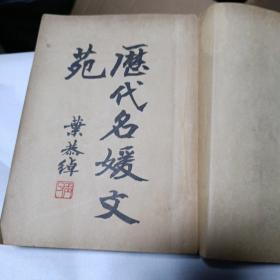 歷代名媛文
苑
葉恭綽